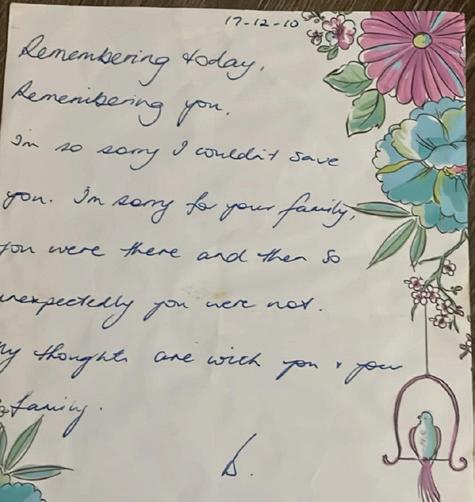 17-12-10
Remembering today.
Remembering you.
I'm so sorry I couldn't save
you. I'm sorry for your family,
you were there and then so
unexpectedly you were not.
My thoughts are with you & your
family.
D.